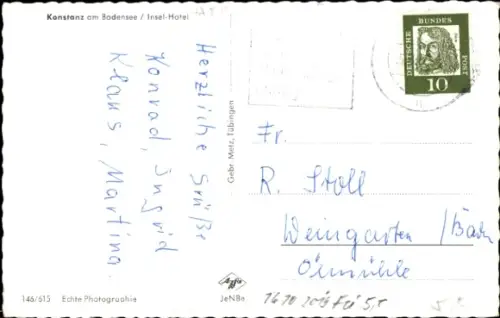 Konstanz am Bodensee / Insel-Hotel
Herzliche Grüße
Konrad, Ingrid
Klaus, Martina.
Gebr. Metz, Tübingen
DEUTSCHE BUNDES POST
10
Fr.
R. Stoll
Weingarten / Baden
Ölmühle
146/615 Echte Photographie
Agfa
JeNBe